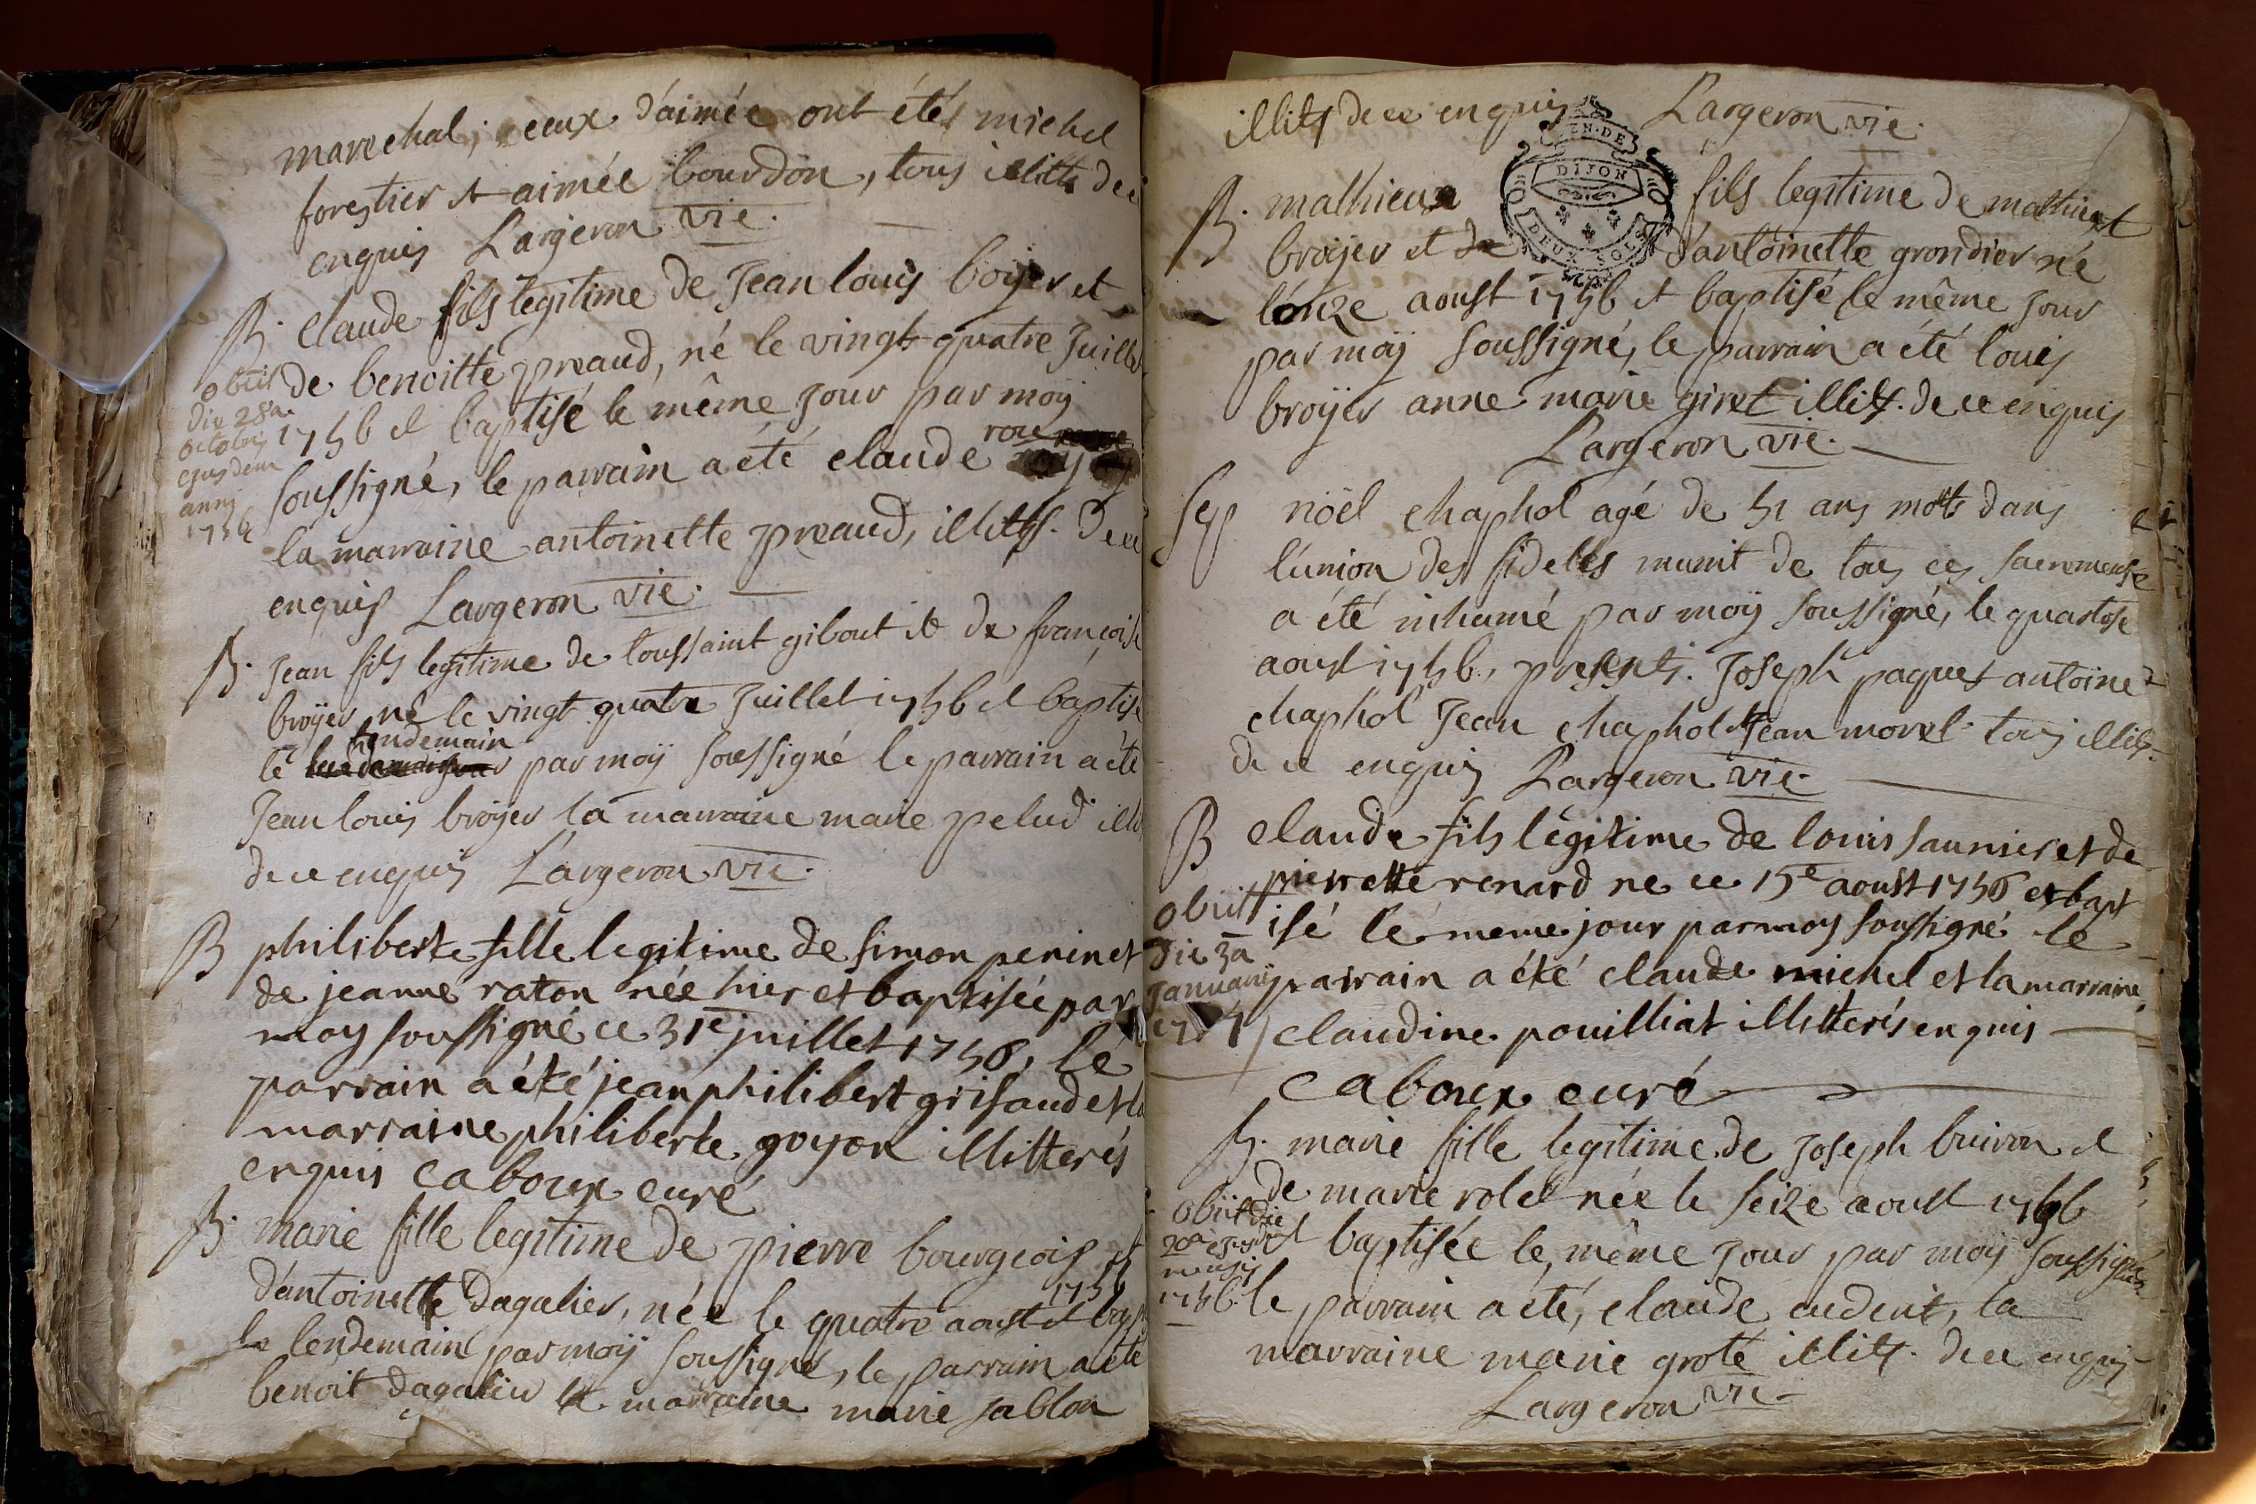 marechal, ceux d'aimée ont étés michel
forestier et aimée bourdon, tous illitts de ce
enquis Largeron vic.
B. claude fils legitime de Jean louis boyer et
de benoitte preaud, né le vingt quatre Juillet
1756 et baptisé le même jour par moÿ
soussigné, le parrain a été claude
la marraine antoinette preaud, illitts. de ce
enquis Largeron vic.
obiit
die 28a
octobris
ejusdem
anni
1756
B. Jean fils legitime de toussaint gibout et de françoise
broÿer né le vingt quatre Juillet 1756 et baptisé
lendemain
le par moÿ soussigné le parrain a été
Jean louis broÿer la marraine marie pelud
de ce enquis Largeron vic.
B philiberte fille legitime de simon perin et
de jeanne raton née hier et baptisée par
moy soussigné ce 31e juillet 1756, le
parrain a été jean philibert grisaud et la
marraine philiberte goyon illitterés
enquis caboux curé
B. marie fille legitime de pierre bourgeois et
1756
d'antoinette dagalier, née le quatre aoust et bap
le lendemain par moÿ soussigné, le parrain a été
benoit dagalier la marraine marie sablon
illitts de ce enquis Largeron vic.
EN. DE
DIJON
DEUX SOLS
B. mathieu fils legitime de mathieu
broÿer et de d'antoinette grondier né
l'onze aoust 1756 et baptisé le même jour
par moÿ soussigné, le parrain a été louis
broÿer anne marie giret illitts. de ce enquis
Largeron vic.
Sep noël chaphol agé de 51 ans mort dans
l'union des fideles munit de tous ces sacrements
a été inhumé par moÿ soussigné, le quartose
aoust 1756, presents. Joseph paquet antoine
chaphol Jean chaphol et Jean morel tous illits.
de ce enquis Largeron vic.
B claude fils légitime de louis saunier et de
pierrette renard né ce 15e aoust 1756 et bapt
isé le meme jour par moy soussigné le
parrain a été claude michel et la marraine
claudine pouilliat illitterés enquis
caboux curé
obiit
die 3a
Januarij
B. marie fille legitime de Joseph buiron et
de marie rolet née le seize aoust 1756
et baptisée le même jour par moÿ soussigné
le parrain a été, claude audent, la
marraine marie grote illitts. de ce enquis
Largeron vic.
obiit die
20a ejusdem
mensis
1756